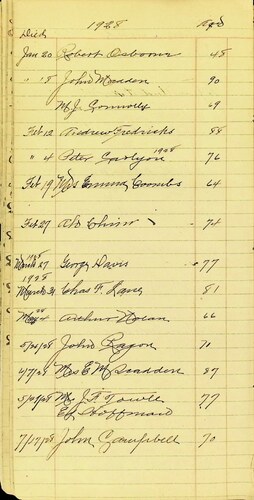 Died 1928 Age
Jan 20 Robert Osborne 45
" " 5 John Madden 90
M.J. Connolly 69
Feb 12 Andrew Fredricks 88
1928
" 4 Peter Carlyon 76
Feb 19 Mrs Emma Coombs 64
Feb 27 Ah Chin 74
1928
March 27 George Davis 77
1928
March 31 Chas F. Lane 81
May Arthur Nolan 66
John Ragon 70
4/7/08 Mrs E M Madden 87
Mr J. F. Towle 77
Ed Hoffman
7/17/08 John Campbell 70